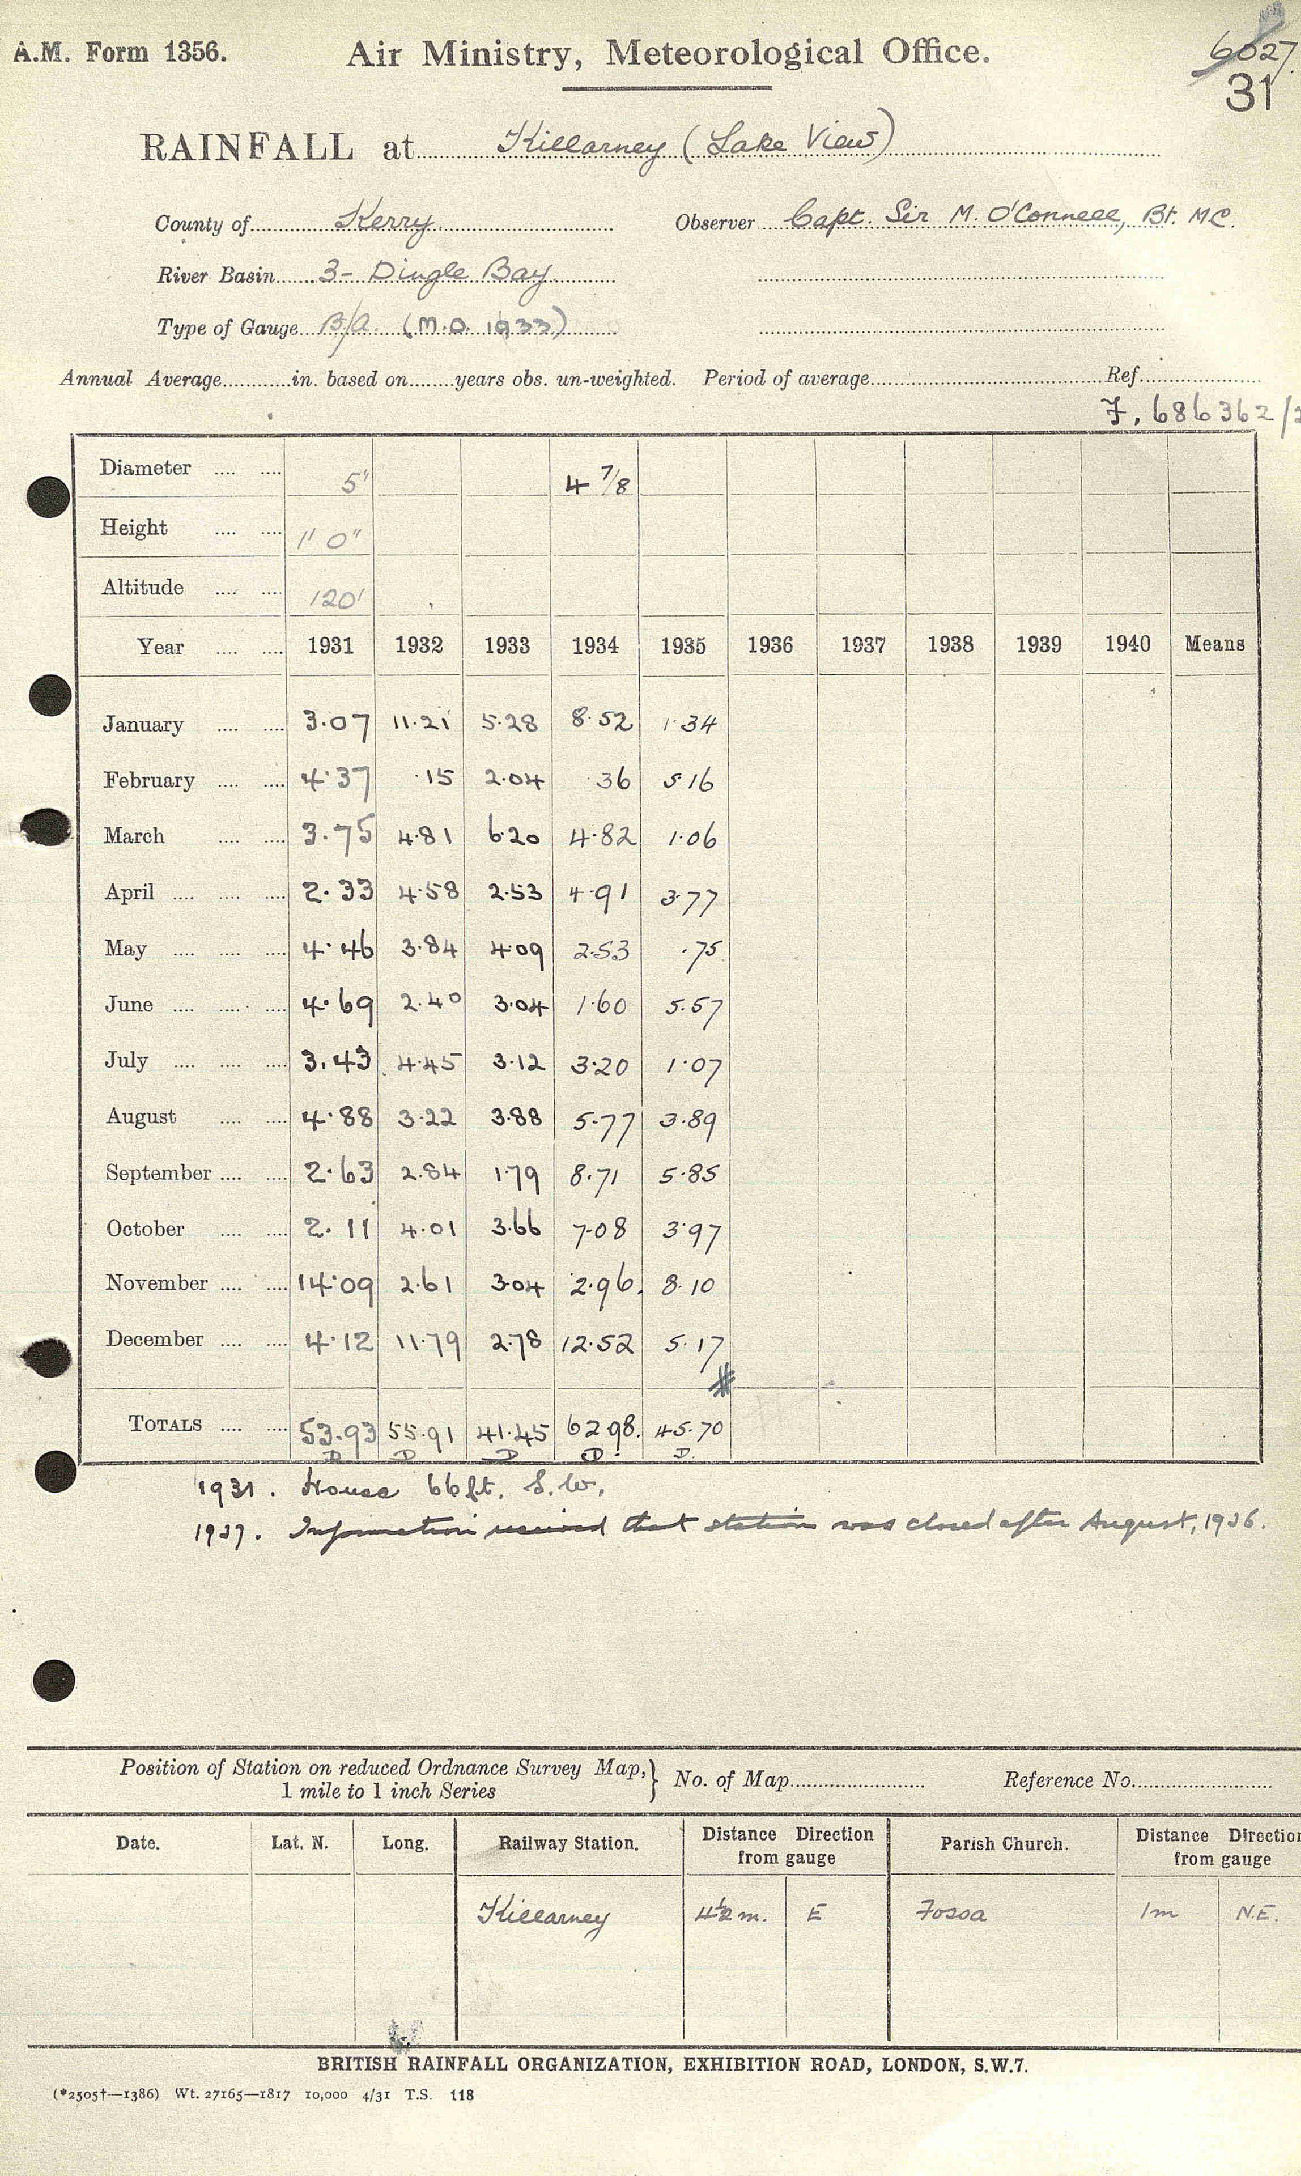 A.M. Form 1356. Air Ministry, Meteorological Office. 6027.
31
RAINFALL at Killarney (Lake View)
County of Kerry Observer Capt. Sir M. O'Connell, Bt. MC.
River Basin 3- Dingle Bay
Type of Gauge B/A (M.O. 1933)
Annual Average in. based on years obs. un-weighted. Period of average Ref
7, 686362/
Diameter 5" 4 7/8
Height 1' 0"
Altitude 120'
Year 1931 1932 1933 1934 1935 1936 1937 1938 1939 1940 Means
January 3.07 11.21 5.28 8.52 1.34
February 4.37 .15 2.04 .36 5.16
March 3.75 4.81 6.20 4.82 1.06
April 2.33 4.58 2.53 4.91 3.77
May 4.46 3.84 4.09 2.53 .75
June 4.69 2.40 3.04 1.60 5.57
July 3.43 4.45 3.12 3.20 1.07
August 4.88 3.22 3.88 5.77 3.89
September 2.63 2.84 1.79 8.71 5.85
October 2.11 4.01 3.66 7.08 3.97
November 14.09 2.61 3.04 2.96 8.10
December 4.12 11.79 2.78 12.52 5.17
TOTALS 53.93 55.91 41.45 62.98 45.70
D D D D D.
1931. House 66ft. S.W.
1937. Information received that station was closed after August, 1936.
Position of Station on reduced Ordnance Survey Map, } No. of Map Reference No.
1 mile to 1 inch Series
Date. Lat. N. Long. Railway Station. Distance Direction Parish Church. Distance Direction
from gauge from gauge
Killarney 4½ m. E Fossa 1m N.E.
BRITISH RAINFALL ORGANIZATION, EXHIBITION ROAD, LONDON, S.W.7.
(*2505†—1386) Wt. 27165—1817 10,000 4/31 T.S. 118